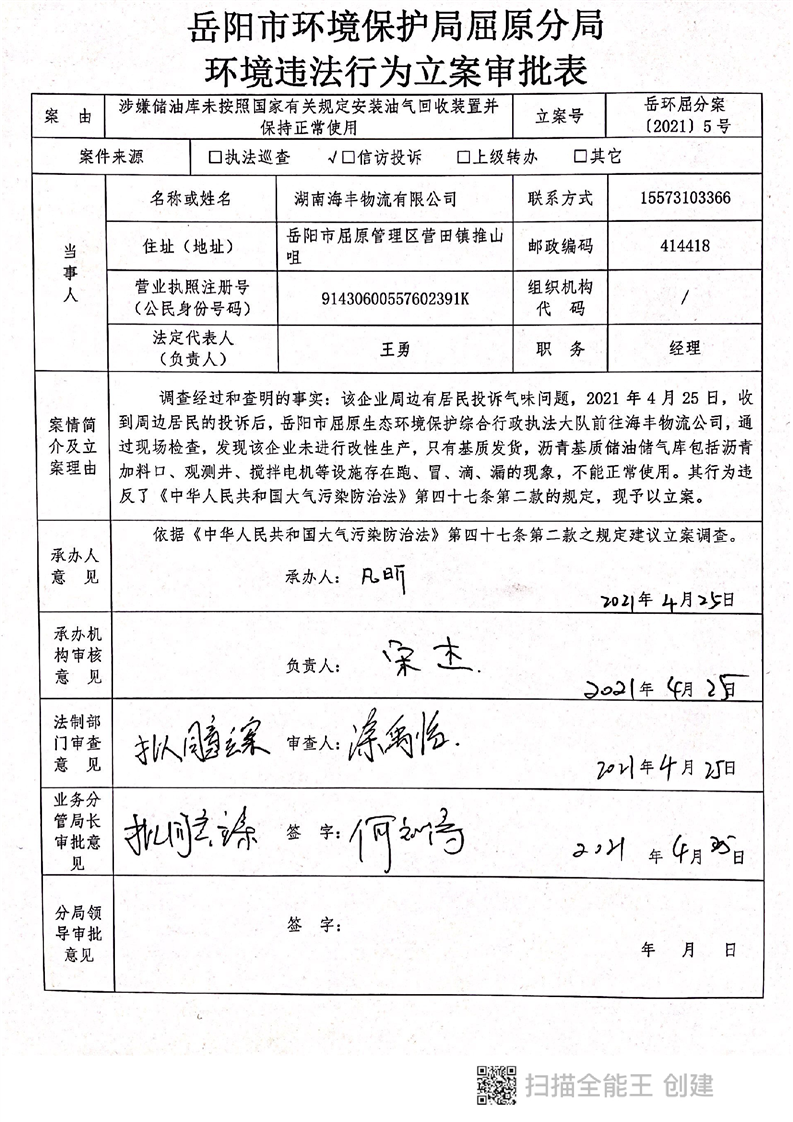 岳阳市环境保护局屈原分局
环境违法行为立案审批表
案 由
涉嫌储油库未按照国家有关规定安装油气回收装置并
保持正常使用
立案号
岳环屈分案
〔2021〕5号
案件来源
□执法巡查 √□信访投诉 □上级转办 □其它
当
事
人
名称或姓名
湖南海丰物流有限公司
联系方式
15573103366
住址（地址）
岳阳市屈原管理区营田镇推山
咀
邮政编码
414418
营业执照注册号
（公民身份号码）
91430600557602391K
组织机构
代 码
/
法定代表人
（负责人）
王勇
职 务
经理
案情简
介及立
案理由
调查经过和查明的事实：该企业周边有居民投诉气味问题，2021年4月25日，收
到周边居民的投诉后，岳阳市屈原生态环境保护综合行政执法大队前往海丰物流公司，通
过现场检查，发现该企业未进行改性生产，只有基质发货，沥青基质储油储气库包括沥青
加料口、观测井、搅拌电机等设施存在跑、冒、滴、漏的现象，不能正常使用。其行为违
反了《中华人民共和国大气污染防治法》第四十七条第二款的规定，现予以立案。
承办人
意 见
依据《中华人民共和国大气污染防治法》第四十七条第二款之规定建议立案调查。
承办人：
2021年4月25日
承办机
构审核
意 见
负责人：宋杰.
2021年4月25日
法制部
门审查
意 见
拟同意立案
审查人：
2021年4月25日
业务分
管局长
审批意
见
拟同意立案
签 字：
2021年4月25日
分局领
导审批
意见
签 字：
年 月 日
扫描全能王 创建